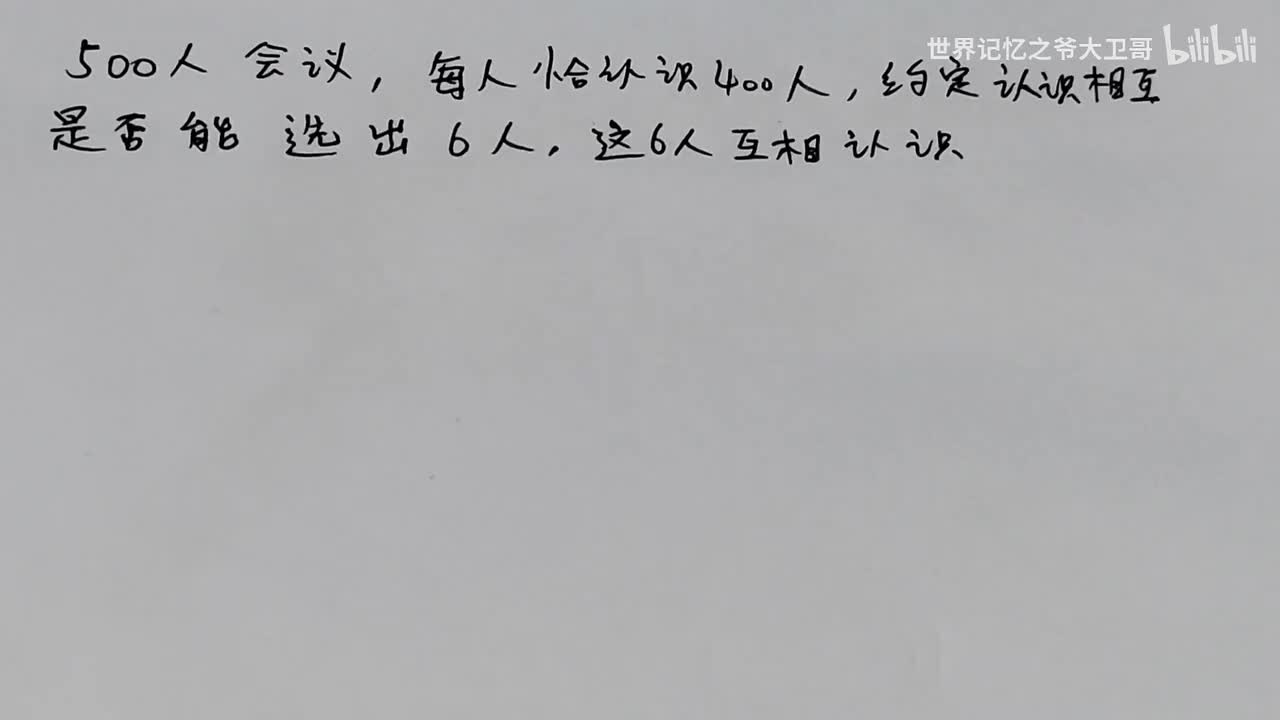 世界记忆之爷大卫哥 bilibili
500人会议，每人恰认识400人，约定认识相互
是否能选出6人，这6人互相认识